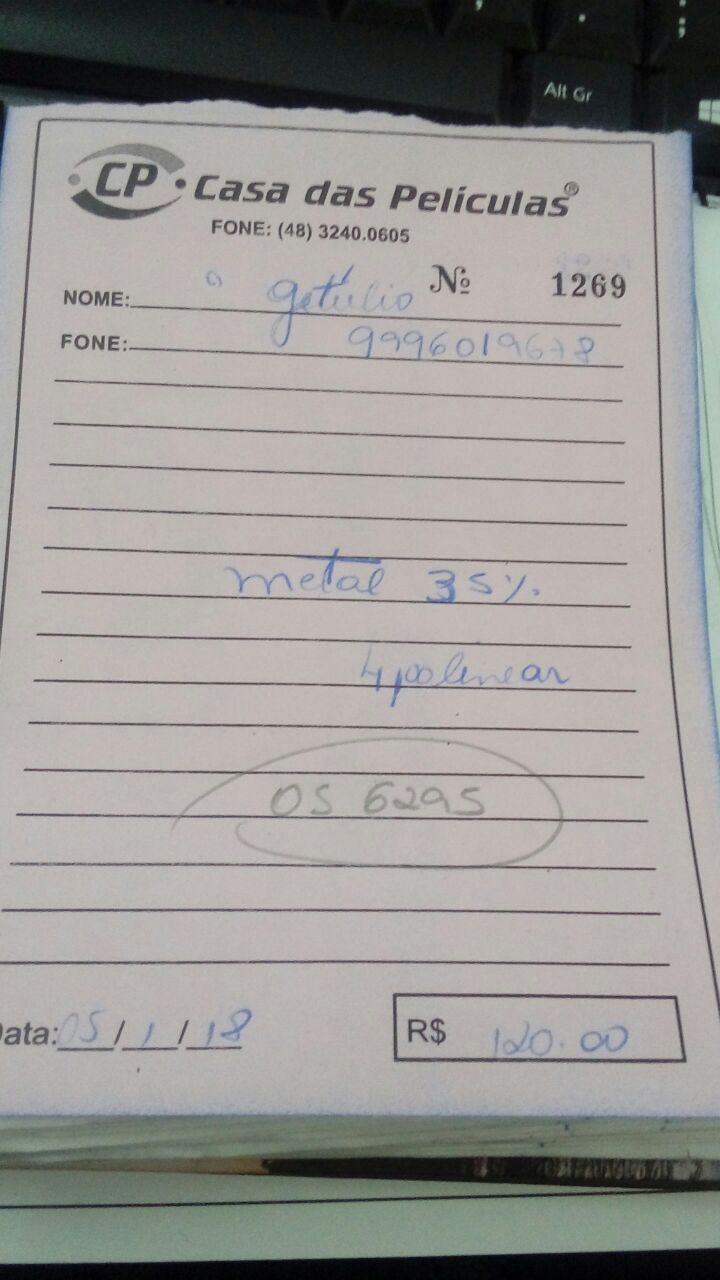 Alt Gr
CP Casa das Películas®
FONE: (48) 3240.0605
Nº 1269
NOME: Getulio
FONE: 9996019678
metal 35%.
4 po linear
OS 6295
Data: 05/1/18
R$ 120.00